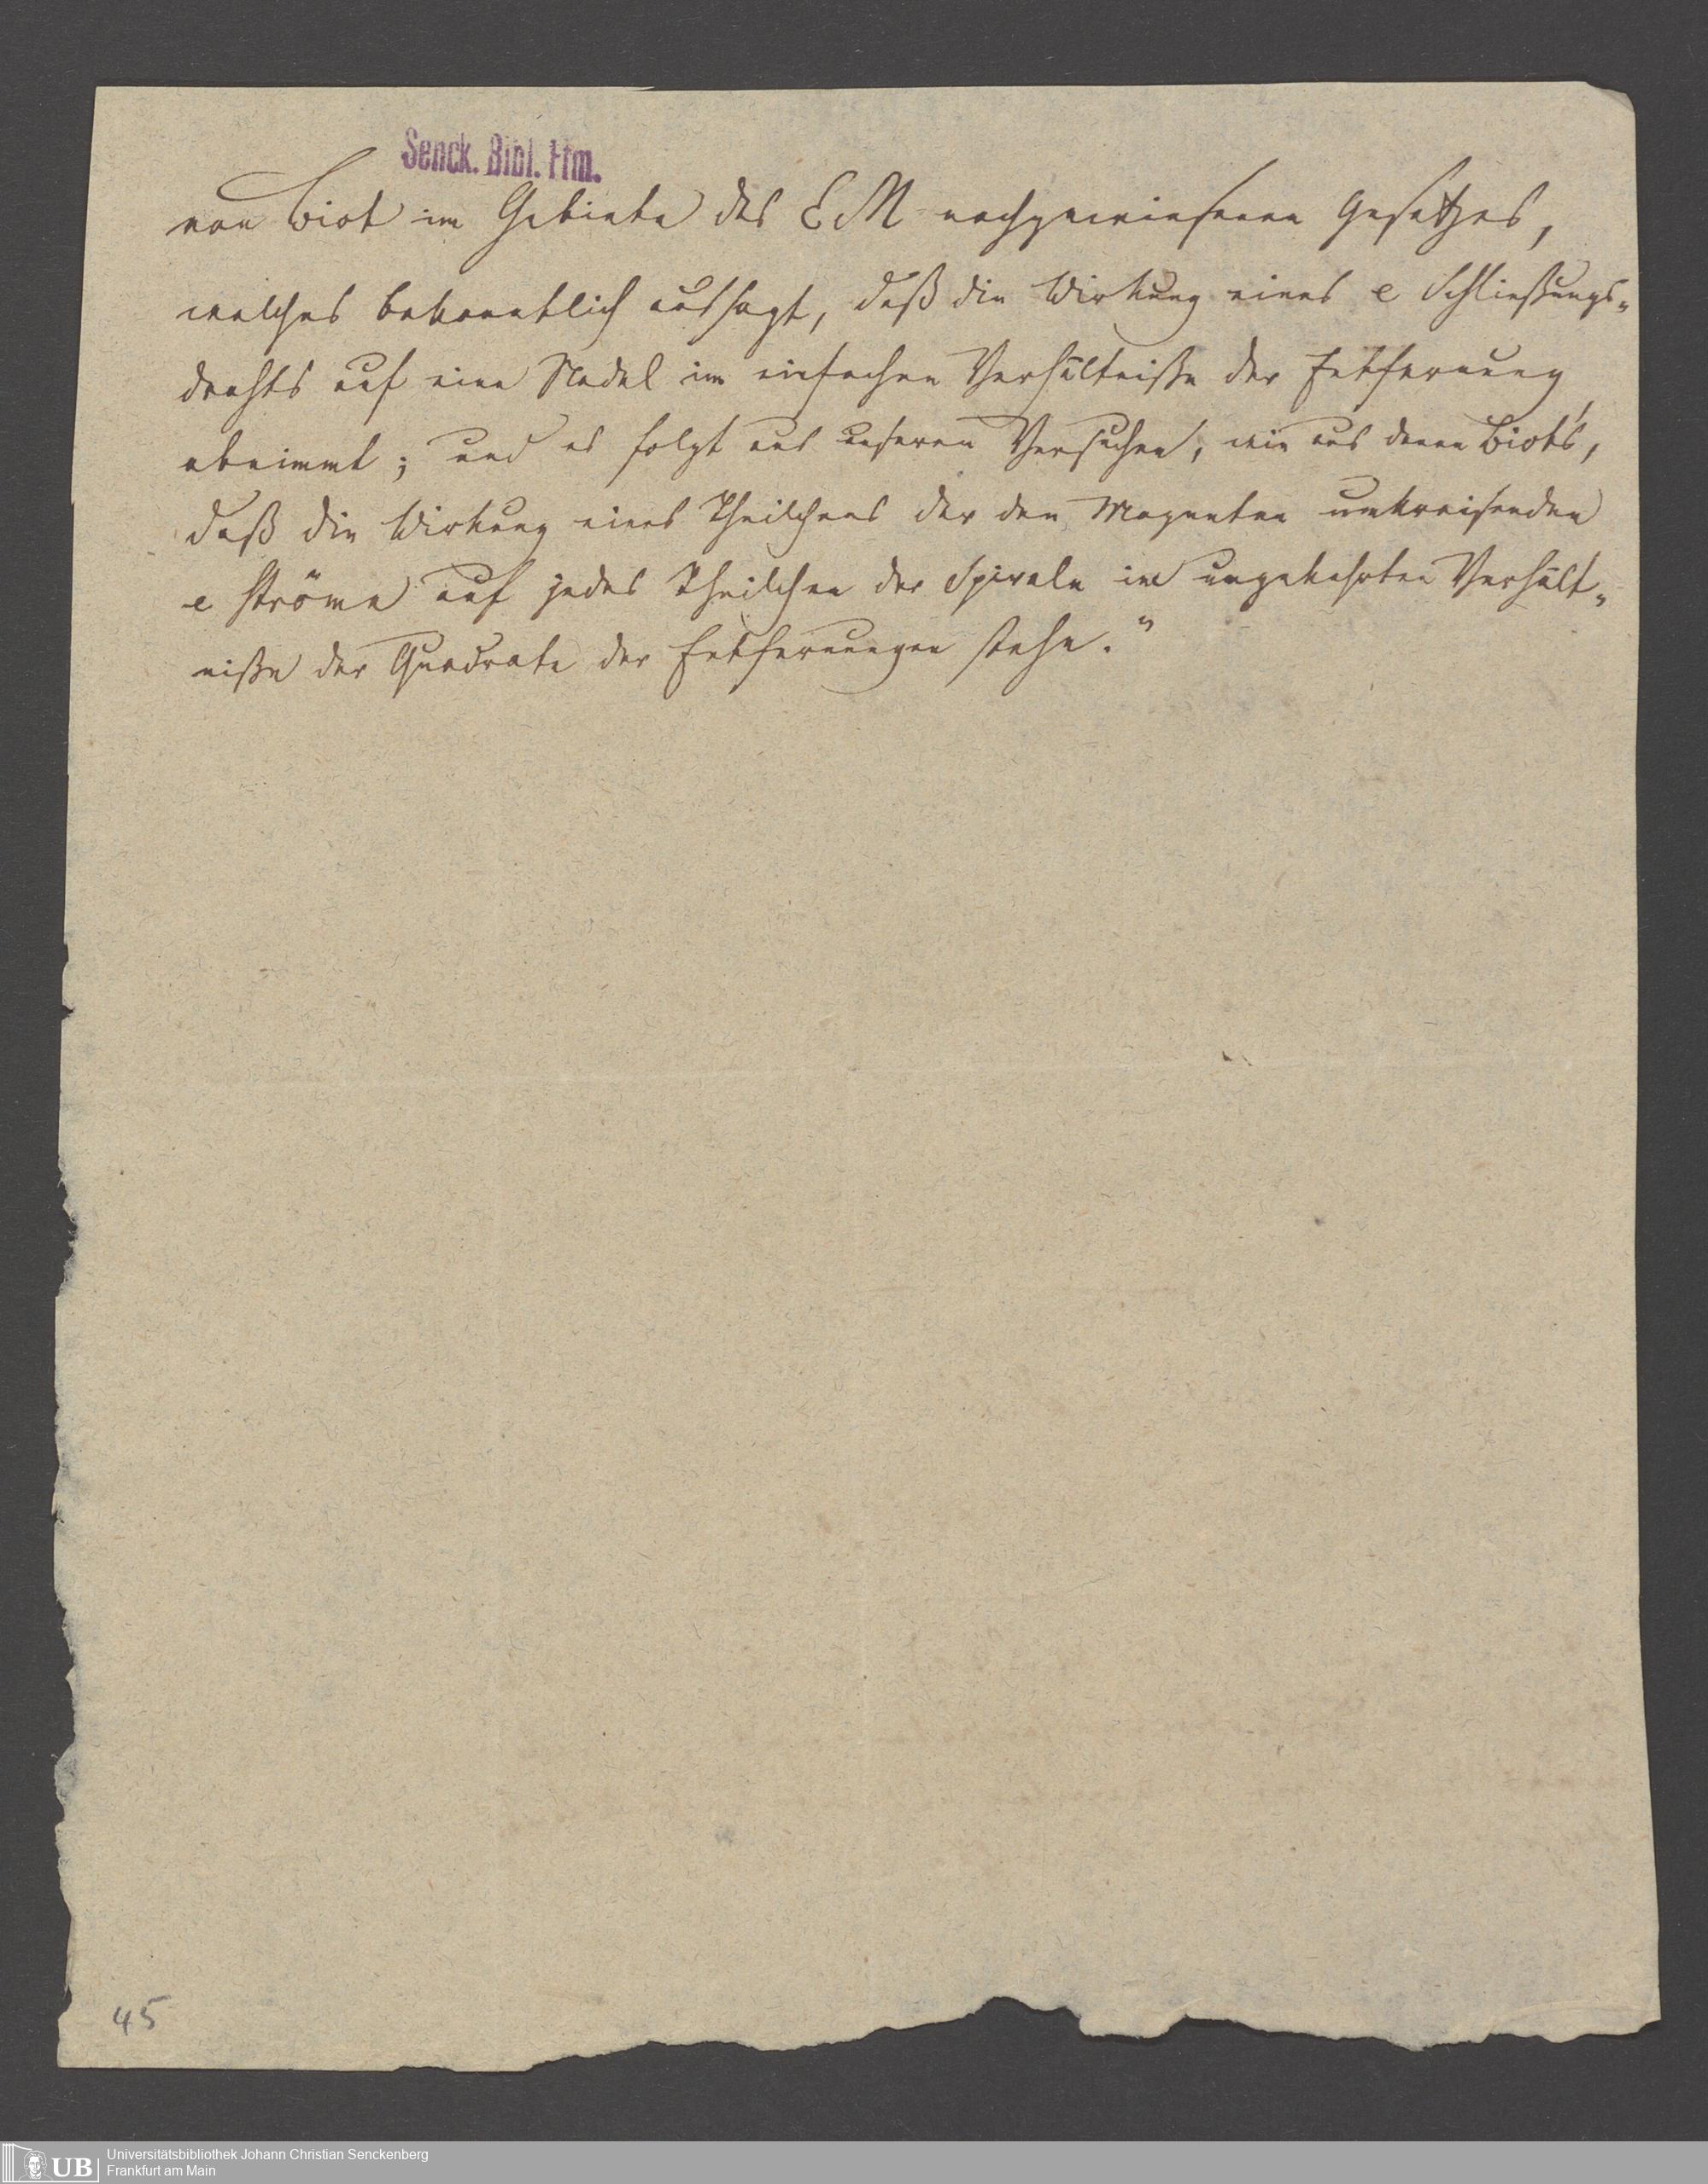 Senck. Bibl. Ffm.
von Biot im Gebiete des EM nachgewiesenen Gesetzes,
welches bekanntlich aussagt, daß die Wirkung eines e Schließungs„
drahts auf eine Nadel im einfachen Verhältniße der Entfernung,
abnimmt; und es folgt aus unseren Versuchen, wie aus denen Biots,
daß die Wirkung eines Theilchens der den Magneten umkreisenden
e Ströme auf jedes Theilchen der Spirale im umgekehrten Verhält„
niße der Quadrate der Entfernungen stehe.“
45
UB
Universitätsbibliothek Johann Christian Senckenberg
Frankfurt am Main